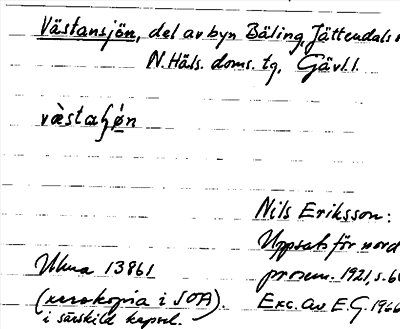 Västansjön, del av byn Bäling, Jättendals
N. Häls. doms. tg, Gävl. l.
Nils Eriksson:
Uppsats för nord
prosem. 1921, s. 6
Ulma 13861
(xerokopia i SOA).
Exc. av E.G. 1966
i särskild kapsel.